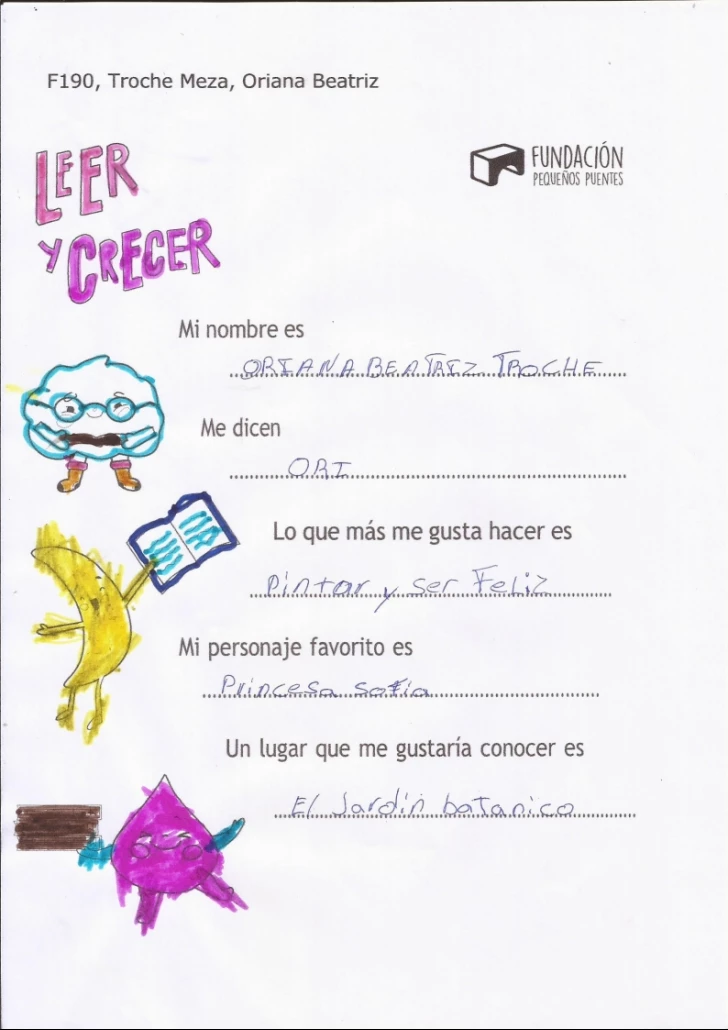 F190, Troche Meza, Oriana Beatriz
LEER
Y CRECER
FUNDACIÓN
PEQUEÑOS PUENTES
Mi nombre es
ORIANA BEATRIZ TROCHE
Me dicen
ORI
Lo que más me gusta hacer es
Pintar y ser Feliz
Mi personaje favorito es
Princesa sofia
Un lugar que me gustaría conocer es
El Jardin batanico